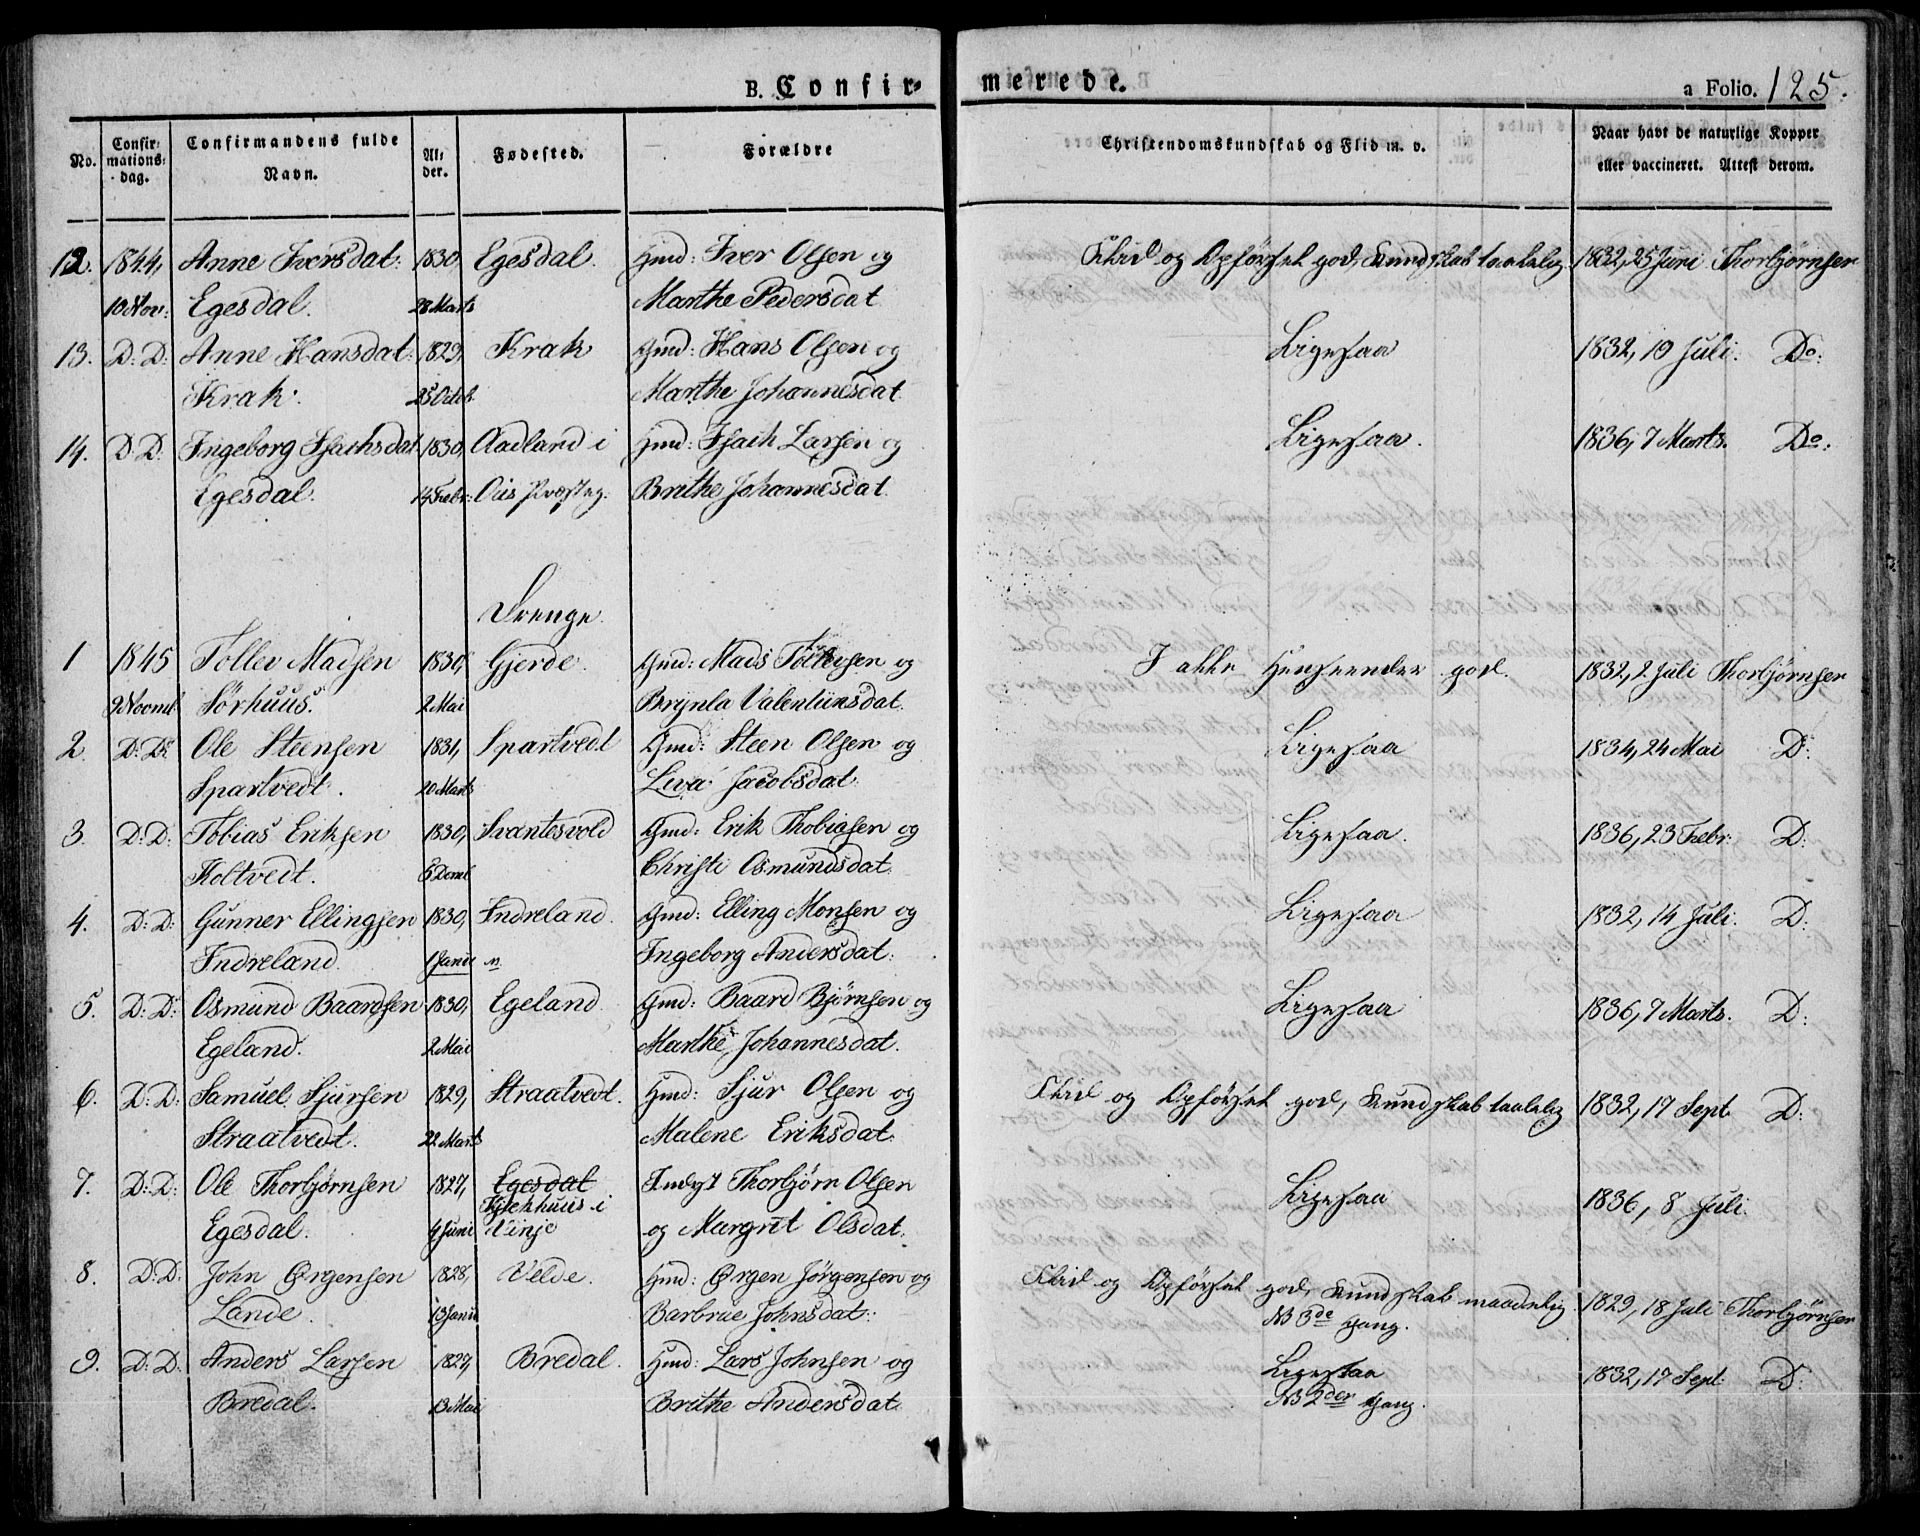 B. Confir- merede. a Folio. 125.
No. Confir- mations- dag. Confirmandens fulde Navn. Al- der. Fødested. Forældre Christendomskundskab og Flid m. v. Naar havt de naturlige Kopper eller vaccineret. Attest derom.
12. 1844, Anne Iversdat: 1830, Egesdal. Gmd: Iver Olsen og Flid og Opførsel god, Kundskab taalelig 1832, 25 Juni Thorbjørnsen
10 Nov: Egesdal. 28 Marts Marthe Pedersdat
13. D: D: Anne Hansdat: 1829, Krak Gmd: Hans Olsen og Ligesaa 1832, 10 Juli. Do:
Krak. 25 Octob. Marthe Johannesdat
14. D: D: Ingeborg Isachsdat 1830, Aadland i Gmd: Isach Larsen og Ligesaa. 1836, 7 Marts. Do:
Egesdal. 14 Febr: Ous Præsteg: Brithe Johannesdat.
Drenge.
1 1845 Tollev Madsen 1830, Gjerde. Gmd: Mads Tollevsen og I alle Henseender god. 1832, 2 Juli Thorbjørnsen
9 Novmb. Sørhuus. 2 Mai Brynla Valentinsdat.
2 D: D: Ole Steensen 1831, Spartvedt Gmd: Steen Olsen og Ligesaa 1834, 24 Mai D:
Spartvedt. 20 Marts Liva Jacobsdat.
3. D: D: Tobias Eriksen 1830, Svantesvold Gmd: Erik Thobiasen og Ligesaa. 1836, 23 Febr: D:
Holtvedt. 6 Decmb Christi Osmundsdat.
4. D: D: Gunner Ellingsen 1830, Indreland. Gmd: Elling Monsen og Ligesaa 1832, 14 Juli. D.
Indreland. 1 Janu Ingeborg Andersdat:
5. D: D: Osmund Baardsen 1830, Egeland. Gmd: Baard Bjørnsen og Ligesaa 1836, 7 Marts. D:
Egeland. 2 Mai Marthe Johannesdat.
6. D: D: Samuel Sjursen 1829, Straatvedt. Gmd: Sjur Olsen og Flid og Opførsel god, Kundskab taalelig 1832, 17 Sept. D:
Straatvedt. 22 Marts Malene Eriksdat.
7. D: D: Ole Thorbjørnsen 1827, Egesdal Indst Thorbjørn Olsen Ligesaa 1836, 8 Juli.
Egesdal. 4 Juni i Vinje og Margrit Olsdat.
8. D: D: John Ørgensen 1828, Velde. Gmd: Ørgen Jørgensen og Flid og Opførsel god, Kundskab maadelig 1829, 18 Juli Thorbjørnsen
Lande. 13 Janu Barbrue Johnsdat: NB 3de Gang.
9. D: D: Anders Larsen 1827, Bredal. Gmd: Lars Johnsen og Ligesaa 1832, 17 Sept: D:
Bredal. 13 Mai Brithe Andersdat NB 2der Gang.